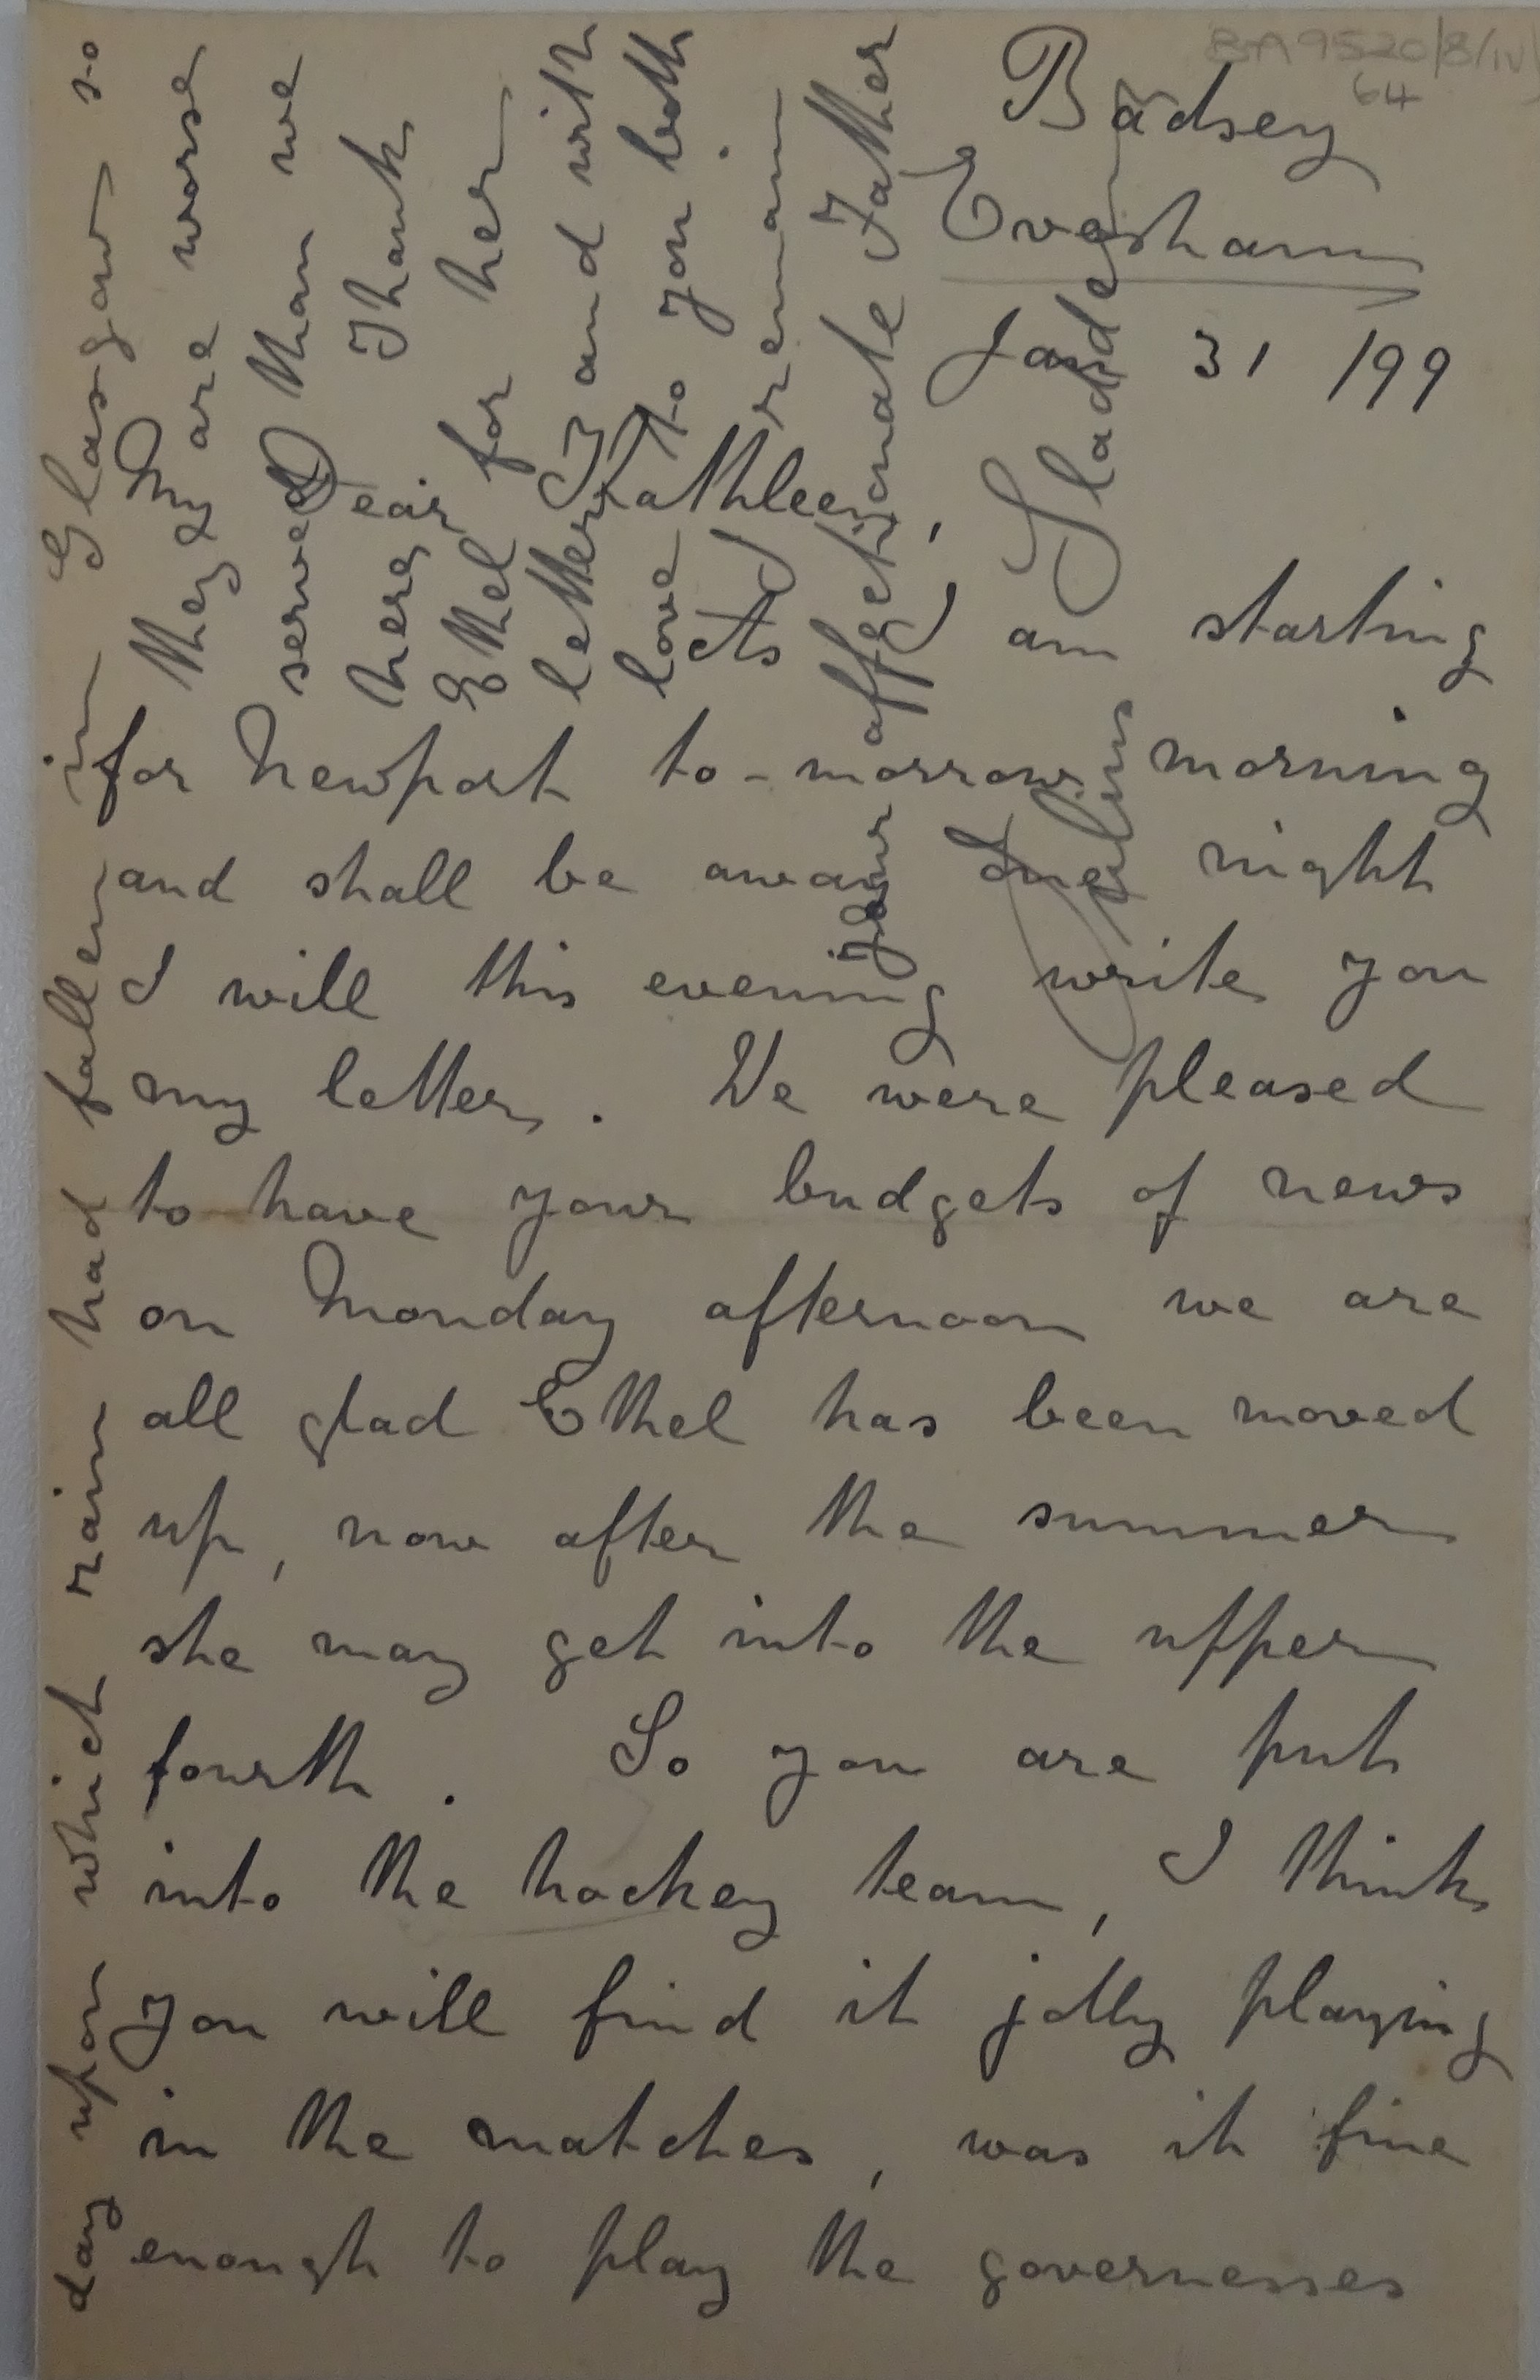 BA9520/8/iv/
64
Badsey
Evesham
Jan 31 /99
Dear Kathleen,
As I am starting
for Newport to-morrow morning
and shall be away one night
I will this evening write you
my letter. We were pleased
to have your budgets of news
on Monday afternoon we are
all glad Ethel has been moved
up, now after the summer
she may get into the upper
fourth. So you are put
into the hockey team, I think
you will find it jolly playing
in the matches, was it fine
enough to play the governesses
day upon which rain had fallen in Glasgow so
they are worse
served than we
here. Thank
Ethel for her
letter & and with
love to you both
I remain
your affectionate Father
Julius Sladden